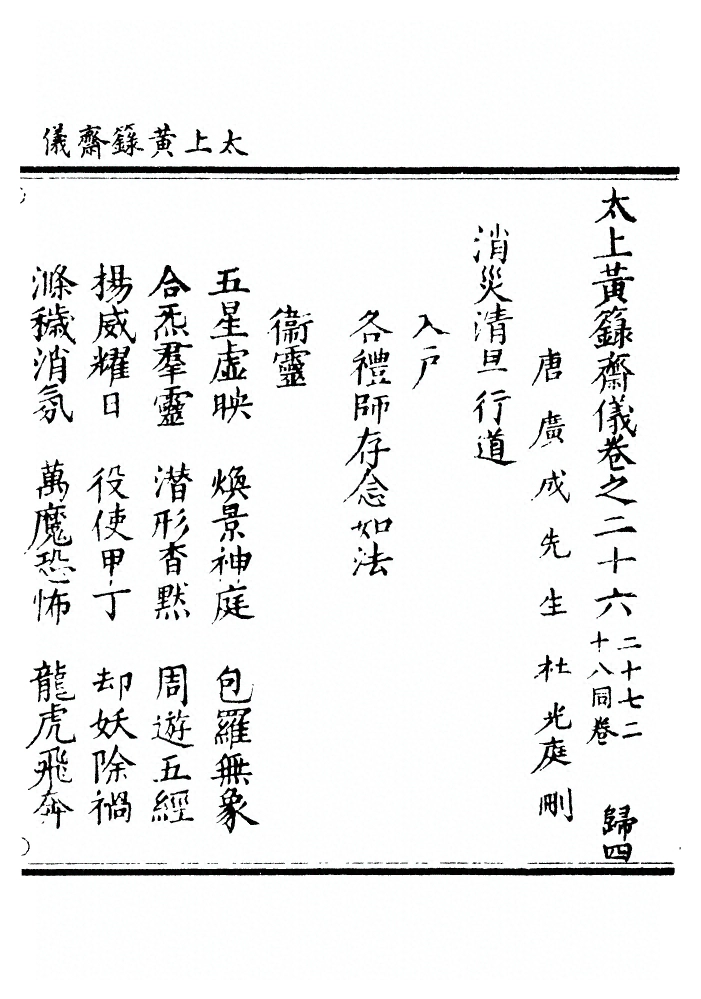 太上黃籙齋儀
太上黃籙齋儀卷之二十六 二十七二十八同卷 歸四
唐廣成先生杜光庭刪
消災清旦行道
入戶
各禮師存念如法
衞靈
五星虛映 煥景神庭 包羅無象
合炁羣靈 潛形杳默 周遊五經
揚威耀日 役使甲丁 却妖除禍
滌穢消氛 萬魔恐怖 龍虎飛奔